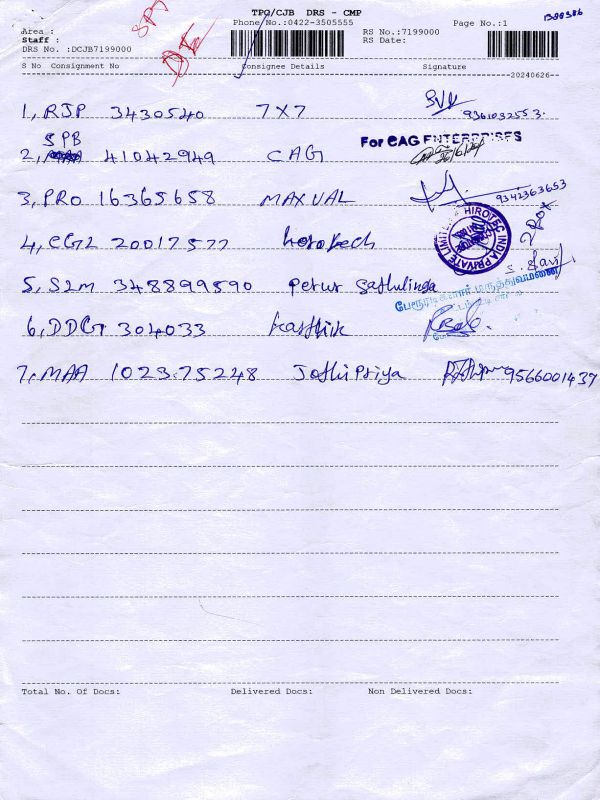 TPQ/CJB DRS - CMP
Phone No.:0422-3505555
Page No.:1
Area :
Staff :
RS No.:7199000
RS Date:
DRS No. :DCJB7199000
S No Consignment No Consignee Details Signature
20240626
1, RJP 3430540 7X7 9361032553.
SPB
For CAG ENTERPRISES
2, 41042949 CAG
3, PRO 16365658 MAXVAL 9342363653
HIROTEC INDIA PRIVATE LIMITED
4, CGL 20017577 horotech
5, S2M 348899590 Perur Sathulinga
பேரூரடிகளார் மருத்துவமனை
6, DDG 304033 karthik
7, MAA 102375248 Jothi Priya 9566001437
Total No. Of Docs: Delivered Docs: Non Delivered Docs: